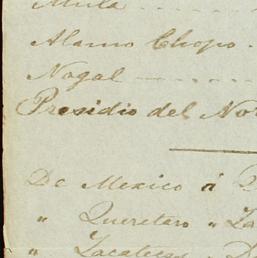 Mula
Alamo Chopo
Nogal
Presidio del Nor
De Mexico á
" Queretaro " Za
" Zacatecas "